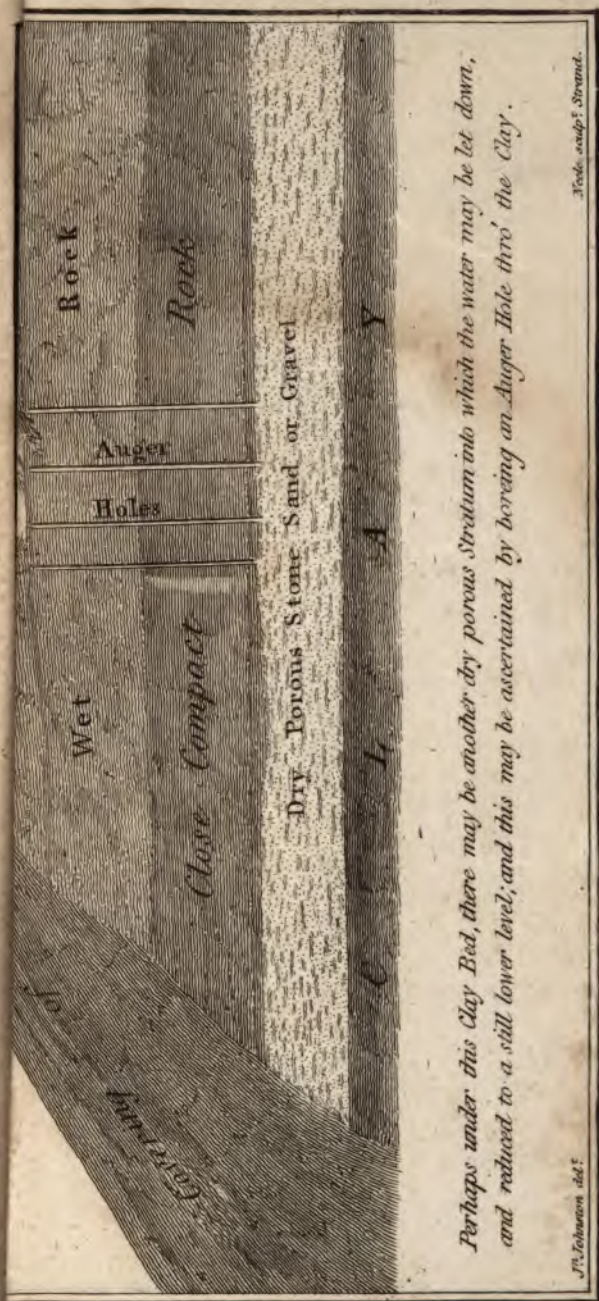 Wet Rock
Auger
Holes
Close Compact Rock
Covering of
Dry Porous Stone Sand or Gravel
C L A Y
Perhaps under this Clay Bed, there may be another dry porous Stratum into which the water may be let down,
and reduced to a still lower level; and this may be ascertained by boreing an Auger Hole thro' the Clay.
Jn. Johnston delt.
Neele sculpt. Strand.